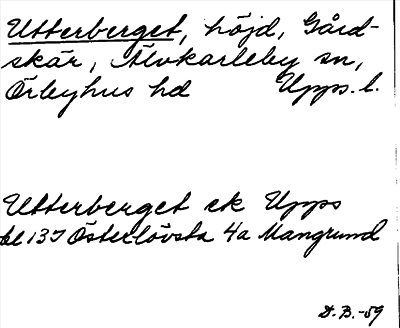 Utterberget, höjd, Gård-
skär, Älvkarleby sn,
Örbyhus hd Upps. l.
Utterberget ek Upps
bl 137 Österlövsta 4a Mangrund
D.B.-59